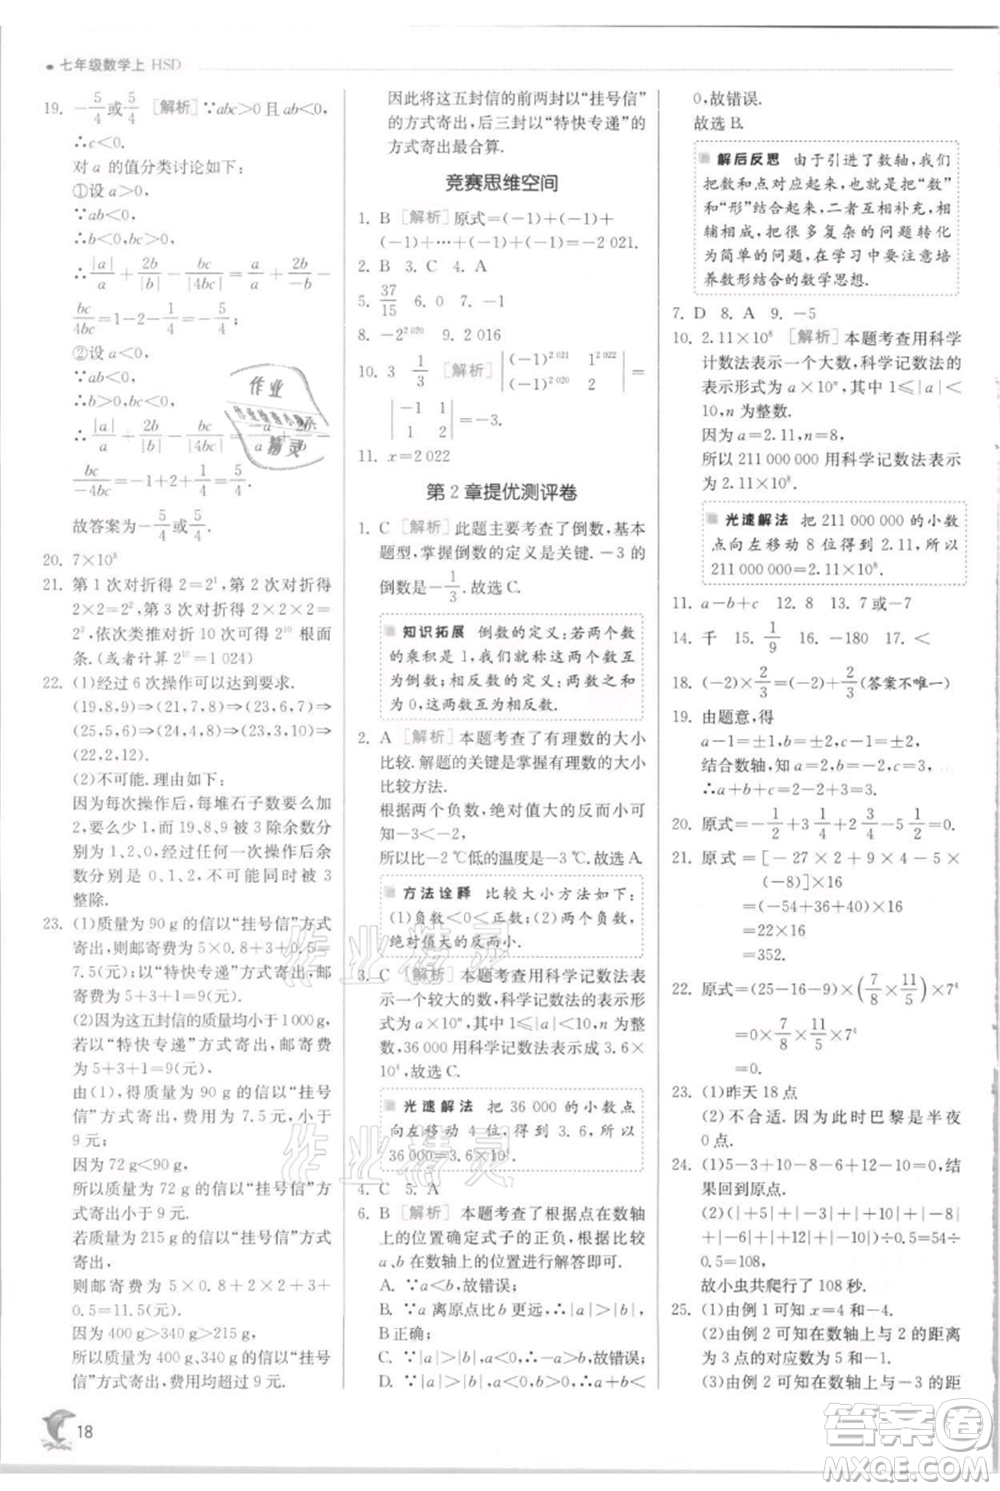 七年级数学上 HSD
19. -5/4或5/4 [解析]∵abc>0且ab<0,
∴c<0.
对 a 的值分类讨论如下:
①设 a>0,
∵ab<0,
∴b<0,bc>0,
∴|a|/a+2b/|b|-bc/|4bc|=a/a+2b/-b-
bc/4bc=1-2-1/4=-5/4;
②设 a<0,
∵ab<0,
∴b>0,bc<0,
∴|a|/a+2b/|b|-bc/|4bc|=-a/a+2b/b-
bc/-4bc=-1+2+1/4=5/4.
故答案为-5/4或5/4.
20. 7×10⁸
21. 第 1 次对折得 2=2¹,第 2 次对折得
2×2=2²,第 3 次对折得 2×2×2=
2³,依次类推对折 10 次可得 2¹⁰ 根面
条.(或者计算 2¹⁰=1 024)
22. (1)经过 6 次操作可以达到要求.
(19,8,9)⇒(21,7,8)⇒(23,6,7)⇒
(25,5,6)⇒(24,4,8)⇒(23,3,10)⇒
(22,2,12).
(2)不可能.理由如下:
因为每次操作后,每堆石子数要么加
2,要么少 1,而 19、8、9 被 3 除余数分
别为 1、2、0,经过任何一次操作后余
数分别是 0、1、2,不可能同时被 3
整除.
23. (1)质量为 90 g 的信以“挂号信”方式
寄出,则邮寄费为 5×0.8+3+0.5=
7.5(元);以“特快专递”方式寄出:
5+3+1=9(元).
(2)因为这五封信的质量均小于 1 000 g,
若以“特快专递”方式寄出,邮寄费为
5+3+1=9(元).
由(1)得质量为 90 g 的信以“挂号
信”方式寄出,费用为 7.5 元,小于
9 元;
因为 72 g<90 g,
所以质量为 72 g 的信以“挂号信”方
式寄出小于 9 元.
若质量为 215 g 的信以“挂号信”方式
寄出,
则邮寄费为 5×0.8+2×2+3+
0.5=11.5(元).
因为 400 g>340 g>215 g,
所以质量为 400 g、340 g 的信以“挂号
信”方式寄出,费用均超过 9 元.
18
因此将这五封信的前两封以“挂号信”
的方式寄出,后三封以“特快专递”的
的方式寄出最合算.
竞赛思维空间
1. B [解析]原式=(-1)+(-1)+
(-1)+…+(-1)=-2 021.
2. B 3. C 4. A
5. 37/15 6. 0 7. -1
8. -2²⁰²⁰ 9. 2 016
10. 3 1/3 [解析]|(-1)²⁰²¹ 1²⁰²²
(-1)²⁰²⁰ 2|
=|-1 1
1 2|=-3.
11. x=2 022
第 2 章提优测评卷
1. C [解析]此题主要考查了倒数,基本
题型,掌握倒数的定义是关键.-3 的
倒数是-1/3.故选 C.
知识拓展 倒数的定义:若两个数
的乘积是 1,我们就称这两个数互
为倒数;相反数的定义:两数之和
为 0,这两数互为相反数.
2. A [解析]本题考查了有理数的大小
比较.解题的关键是掌握有理数的大小
比较方法.
根据两个负数,绝对值大的反而小可
知-3<-2,
所以比-2 ℃低的温度是-3℃.故选 A.
方法诠释 比较大小方法如下:
(1)负数<0<正数;(2)两个负数,
绝对值大的反而小.
3. C [解析]本题考查用科学记数法表示
一个较大的数,科学记数法的表示形式
为 a×10ⁿ,其中 1≤|a|<10,n 为整
数,36 000 用科学记数法表示成 3.6×
10⁴.故选 C.
光速解法 把 36 000 的小数点
向左移动 4 位,得到 3.6,所以
36 000=3.6×10⁴.
4. C 5. A
6. B [解析]本题考查了根据点在数轴
上的位置确定式子的正负,根据题图中
a、b 在数轴上的位置进行解答即可.
A. ∵a<b,故错误;
B. ∵a 离原点比 b 远,∴|a|>|b|,故
B 正确;
C. ∵|a|>|b|,a<0,b>0,故错误;
0,故错误.
故选 B.
解后反思 由于引进了数轴,我们
把数和点对应起来,也就是把“数”
和“形”结合起来,二者互相补充,相
辅相成,把很多复杂的问题转化
为简单的问题,在学习中要注意培
养数形结合的数学思想.
7. D 8. A 9. -5
10. 2.11×10⁸ [解析]本题考查用科学
计数法表示一个大数,科学记数法的
表示形式为 a×10ⁿ,其中 1≤|a|<
10,n 为整数.
因为 a=2.11,n=8,
所以 211 000 000 用科学记数法表示
为 2.11×10⁸.
光速解法 把 211 000 000 的小数
点向左移动 8 位得到 2.11,所以
211 000 000=2.11×10⁸.
11. a-b+c 12. 8 13. 7 或-7
14. 千 15. 1/9 16. -180 17. <
18. (-2)×2/3=(-2)+2/3(答案不唯一)
19. 由题意,得
a-1=±1,b-1=±2,
结合数轴,可知 a=0,b=3,
∴a+b+2=0+3=3.
20. 原式=-1/2+3 1/4+2 3/4-5 1/2=0.
21. 原式=[-27×2+9×4-5×
(-8)]×16
=(-54+36+40)×16
=22×16
=352.
22. 原式=(25-16-9)×(7/8×11/5)×7⁴
=0×7/8×11/5×7⁴
=0.
23. (1)昨天 18 点
(2)不合适.因为此时巴黎是半夜
0 点.
24. (1)5-3+10-8-6+12-10=0,
结果回到原点.
(2)(|+5|+|-3|+|+10|+|-8|
+|-6|+|+12|+|-10|)×2=54÷
0.5=108,
故小虫共爬行了 108 秒.
25. (1)由例 1 可知 x=4 和-4.
(2)由例 2 可知在数轴上与 2 的距离
答案圈
MXQE.COM
作业精灵
作业精灵